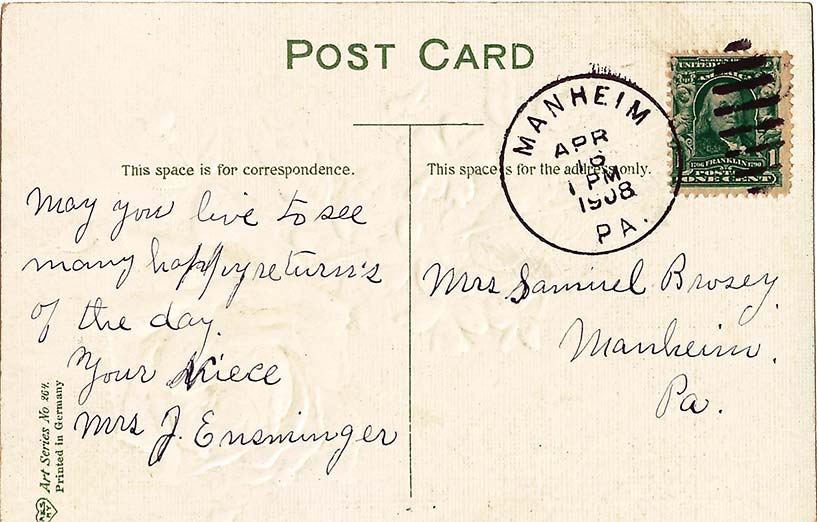 POST CARD
MANHEIM
APR
1 PM
1908
PA.
SERIES 1902
UNITED STATES OF AMERICA
FRANKLIN
POSTAGE
ONE CENT
1
This space is for correspondence.
This space is for the address only.
May you live to see
many happy return's
of the day.
Your Niece
Mrs J. Ensminger
Mrs. Samuel Brosey
Manheim.
Pa.
Art Series No 264.
Printed in Germany